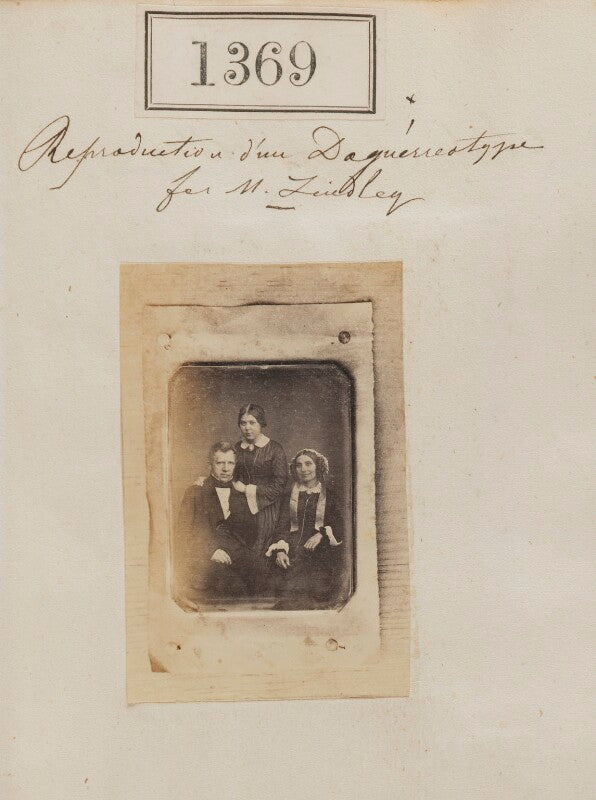 1369
Reproduction d'un Daguérreotype
for M. Lindley